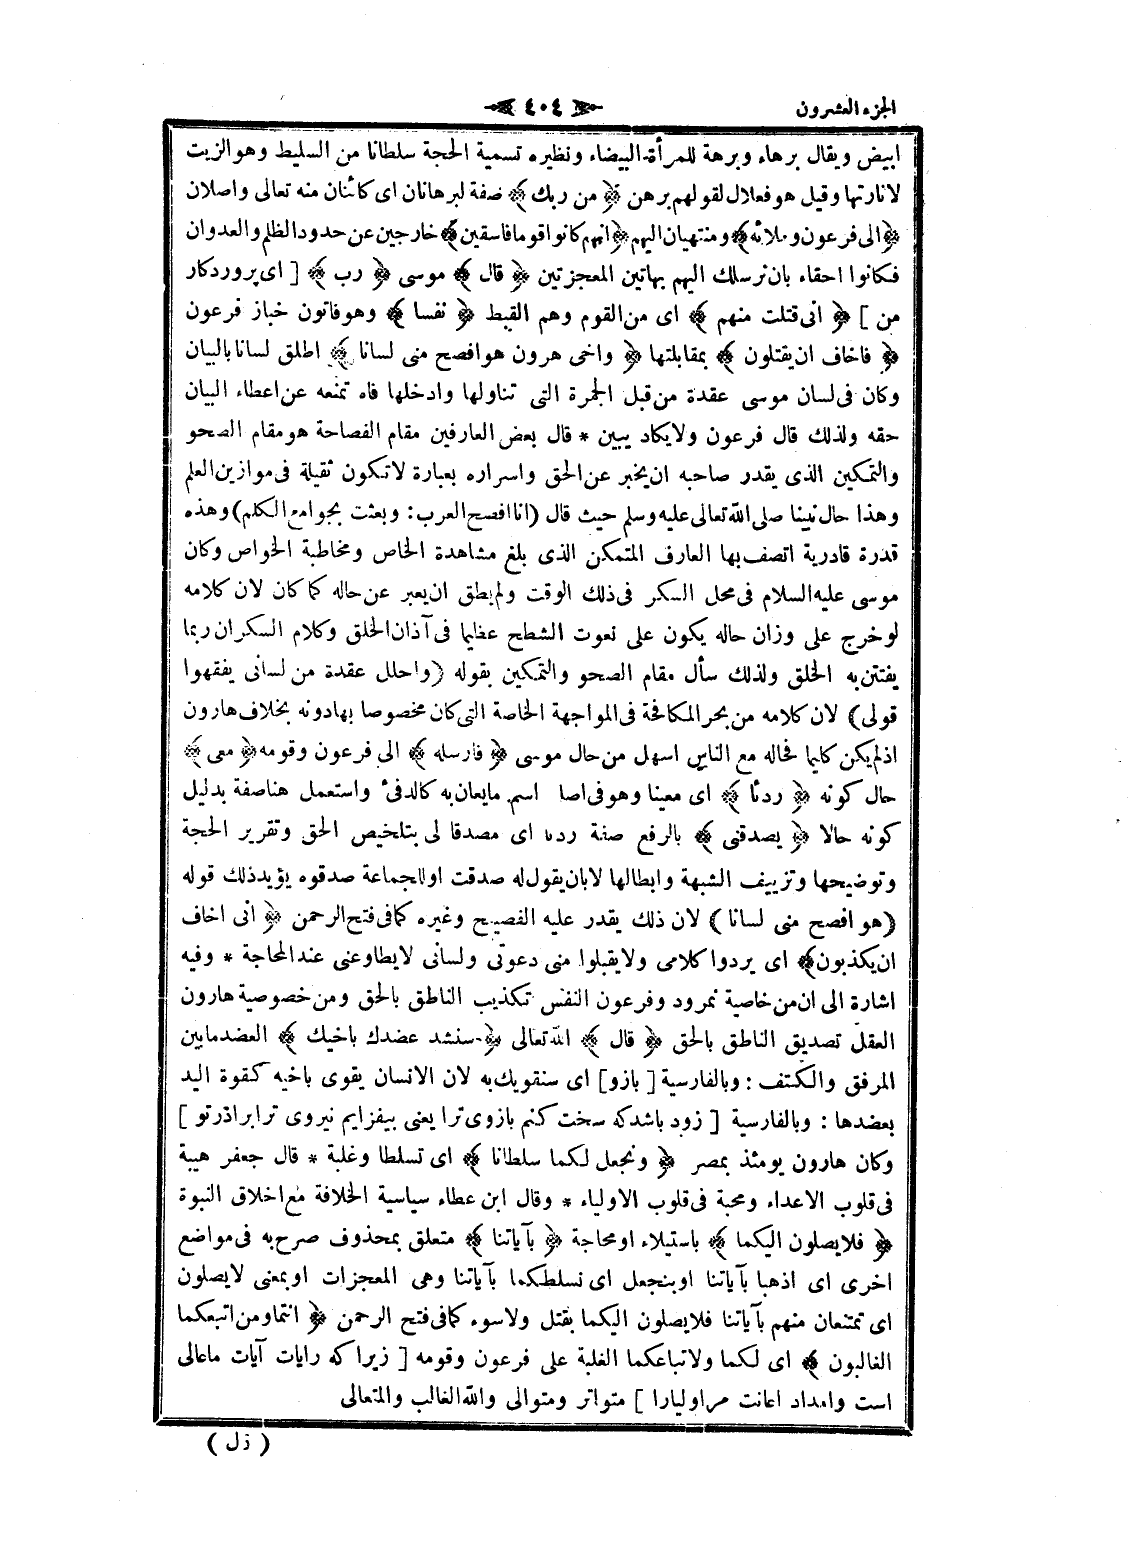 الجزء العشرون ٤٠٤
ابيض ويقال برهاء وبرهة للمرأة البيضاء ونظيره تسمية الحجة سلطانا من السليط وهو الزيت
لانارتها وقيل هو فعلال لقولهم برهن ﴿ من ربك ﴾ صفة لبرهانان اى كائنان منه تعالى واصلان
﴿ الى فرعون وملائه ﴾ ومنتهيان اليهم ﴿ انهم كانوا قوما فاسقين ﴾ خارجين عن حدود الظلم والعدوان
فكانوا احقاء بان نرسلك اليهم بهاتين المعجزتين ﴿ قال ﴾ موسى ﴿ رب ﴾ [ اى پروردكار
من ] ﴿ انى قتلت منهم ﴾ اى من القوم وهم القبط ﴿ نفسا ﴾ وهو فاتون خباز فرعون
﴿ فاخاف ان يقتلون ﴾ بمقابلتها ﴿ واخى هرون هو افصح منى لسانا ﴾ اطلق لسانا بالبيان
وكان فى لسان موسى عقدة من قبل الجمرة التى تناولها وادخلها فاه تمنعه عن اعطاء البيان
حقه ولذلك قال فرعون ولايكاد يبين * قال بعض العارفين مقام الفصاحة هو مقام الصحو
والتمكين الذى يقدر صاحبه ان يخبر عن الحق واسراره بعبارة لاتكون ثقيلة فى موازين العلم
وهذا حال نبينا صلى الله تعالى عليه وسلم حيث قال (انا افصح العرب : وبعثت بجوامع الكلم) وهذه
قدرة قادرية اتصف بها العارف المتمكن الذى بلغ مشاهدة الخاص ومخاطبة الخواص وكان
موسى عليه السلام فى محل السكر فى ذلك الوقت ولم يطق ان يعبر عن حاله كما كان لان كلامه
لوخرج على وزان حاله يكون على نعوت الشطح عظيما فى آذان الخلق وكلام السكران ربما
يفتتن به الخلق ولذلك سأل مقام الصحو والتمكين بقوله (واحلل عقدة من لسانى يفقهوا
قولى) لان كلامه من بحر المكافحة فى المواجهة الخاصة التى كان مخصوصا بها دونه بخلاف هارون
اذ لم يكن كليما فحاله مع الناس اسهل من حال موسى ﴿ فارسله ﴾ الى فرعون وقومه ﴿ معى ﴾
حال كونه ﴿ ردئا ﴾ اى معينا وهو فى اصا اسم مايعان به كالدفئ واستعمل هنا صفة بدليل
كونه حالا ﴿ يصدقنى ﴾ بالرفع صفة ردئا اى مصدقا لى بتلخيص الحق وتقرير الحجة
وتوضيحها وتزييف الشبهة وابطالها لابان يقول له صدقت اوللجماعة صدقوه يؤيد ذلك قوله
(هو افصح منى لسانا) لان ذلك يقدر عليه الفصيح وغيره كما فى فتح الرحمن ﴿ انى اخاف
ان يكذبون ﴾ اى يردوا كلامى ولايقبلوا منى دعوتى ولسانى لايطاوعنى عند المحاجة * وفيه
اشارة الى ان من خاصية نمرود وفرعون النفس تكذيب الناطق بالحق ومن خصوصية هارون
العقل تصديق الناطق بالحق ﴿ قال ﴾ الله تعالى ﴿ سنشد عضدك باخيك ﴾ العضد مابين
المرفق والكتف : وبالفارسية [ بازو ] اى سنقويك به لان الانسان يقوى باخيه كقوة اليد
بعضدها : وبالفارسية [ زود باشد كه سخت كنم بازوى ترا يعنى بيفزايم نيروى ترا برادر تو ]
وكان هارون يومئذ بمصر ﴿ ونجعل لكما سلطانا ﴾ اى تسلطا وغلبة * قال جعفر هيبة
فى قلوب الاعداء ومحبة فى قلوب الاولياء * وقال ابن عطاء سياسية الخلافة مع اخلاق النبوة
﴿ فلايصلون اليكما ﴾ باستيلاء اومحاجة ﴿ بآياتنا ﴾ متعلق بمحذوف صرح به فى مواضع
اخرى اى اذهبا بآياتنا اوبنجعل اى نسلطكما بآياتنا وهى المعجزات اوبمعنى لايصلون
اى تمتنعان منهم بآياتنا فلايصلون اليكما بقتل ولاسوء كما فى فتح الرحمن ﴿ انتما ومن اتبعكما
الغالبون ﴾ اى لكما ولاتباعكما الغلبة على فرعون وقومه [ زيرا كه رايات آيات ماعالى
است وامداد اعانت مراوليارا ] متواتر ومتوالى والله الغالب والمتعالى
( زل )